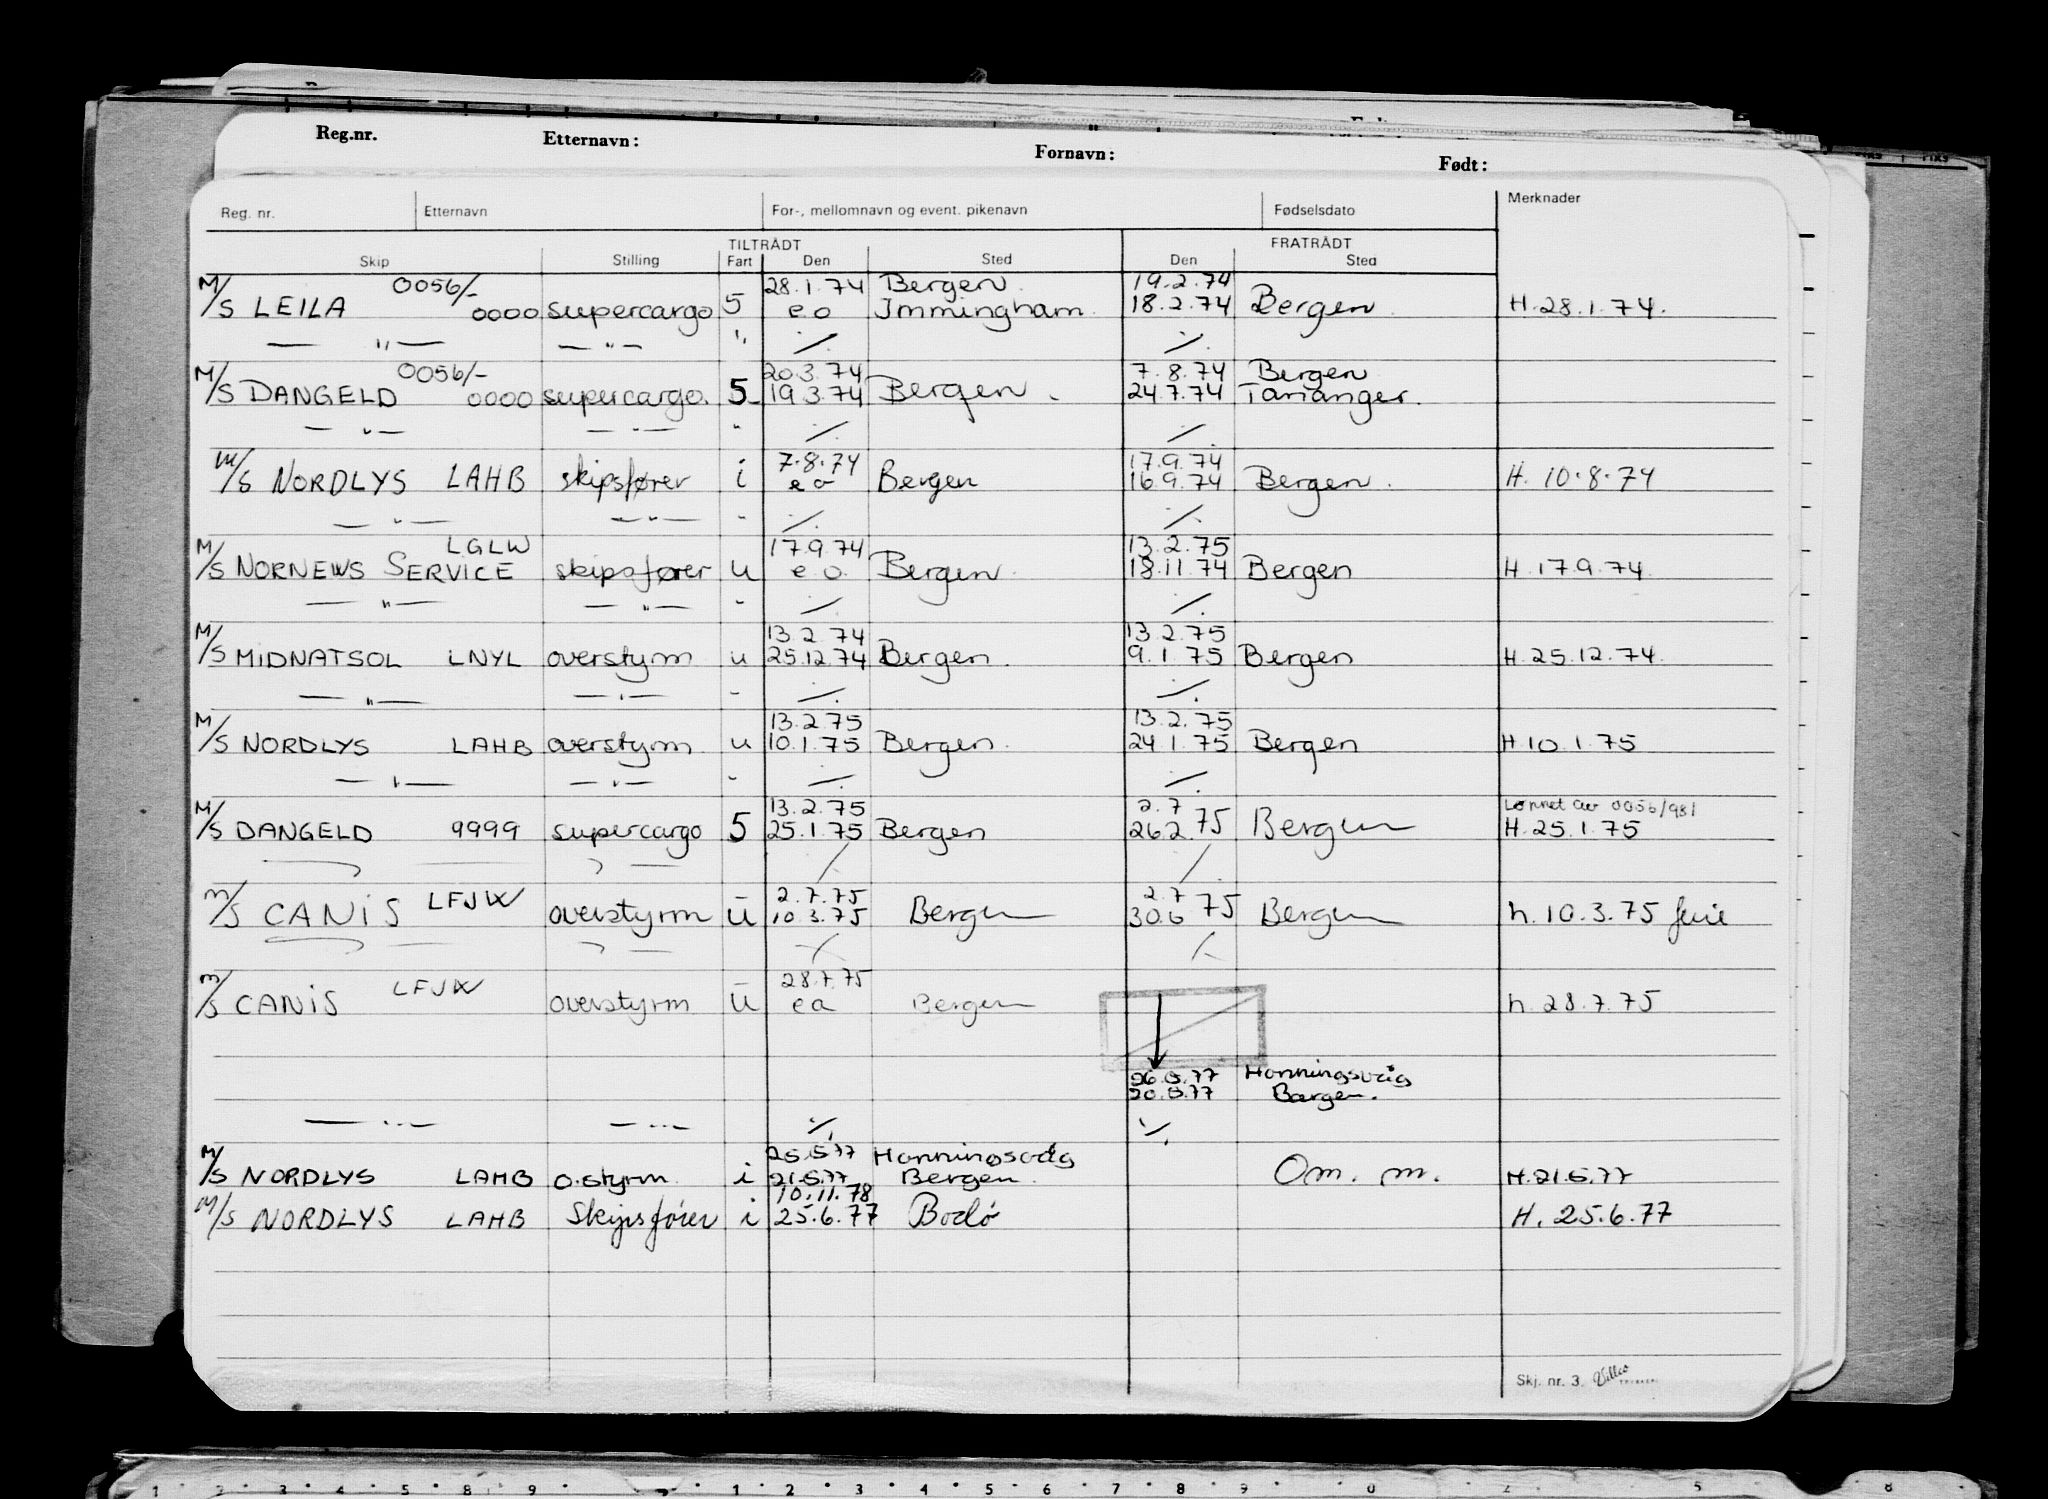 Reg.nr. Etternavn: Fornavn: Født:
Reg. nr. Etternavn For-, mellomnavn og event. pikenavn Fødselsdato Merknader
TILTRÅDT FRATRÅDT
Skip Stilling Fart Den Sted Den Sted
0056/- 28.1.74 Bergen. 19.2.74
M/S LEILA 0000 supercargo 5 eo Immingham. 18.2.74 Bergen. H.28.1.74.
— " — — " — " ./. ./.
0056/- 20.3.74 7.8.74 Bergen
M/S DANGELD 0000 supercargo. 5 19.3.74 Bergen. 24.7.74 Tananger.
— " — — " — " ./. ./.
7.8.74 17.9.74
M/S NORDLYS LAHB skipsfører i eo Bergen 16.9.74 Bergen. H. 10.8.74
— " — — " — " ./. ./.
LGLW 17.9.74 13.2.75
M/S NORNEWS SERVICE skipsfører u eo. Bergen. 18.11.74 Bergen H.17.9.74.
— " — — " — " ./. ./.
13.2.74 13.2.75
M/S MIDNATSOL LNYL overstyrm u 25.12.74 Bergen. 9.1.75 Bergen H.25.12.74.
— " — — " — " ./. ./.
13.2.75 13.2.75
M/S NORDLYS LAHB overstyrm. u 10.1.75 Bergen. 24.1.75 Bergen H.10.1.75
— " — — " — " ./. ./.
13.2.75 2.7 Lønnet av 0056/981
M/S DANGELD 9999 supercargo 5 25.1.75 Bergen 26.2.75 Bergen H.25.1.75
2.7.75 2.7
M/S CANIS LFJW overstyrm u 10.3.75 Bergen 30.6 75 Bergen h.10.3.75 ferie
28.7.75
M/S CANIS LFJW overstyrm u ea Bergen h.28.7.75
26.5.77 Honningsvåg
20.5.77 Bergen.
— " — — " — ./. ./.
25.5.77 Honningsvåg
M/S NORDLYS LAHB o.styrm. i 21.5.77 Bergen. Om. m. H.21.5.77
10.11.78
M/S NORDLYS LAHB Skipsfører i 25.6.77 Bodø H. 25.6.77
Skj. nr. 3. Villco